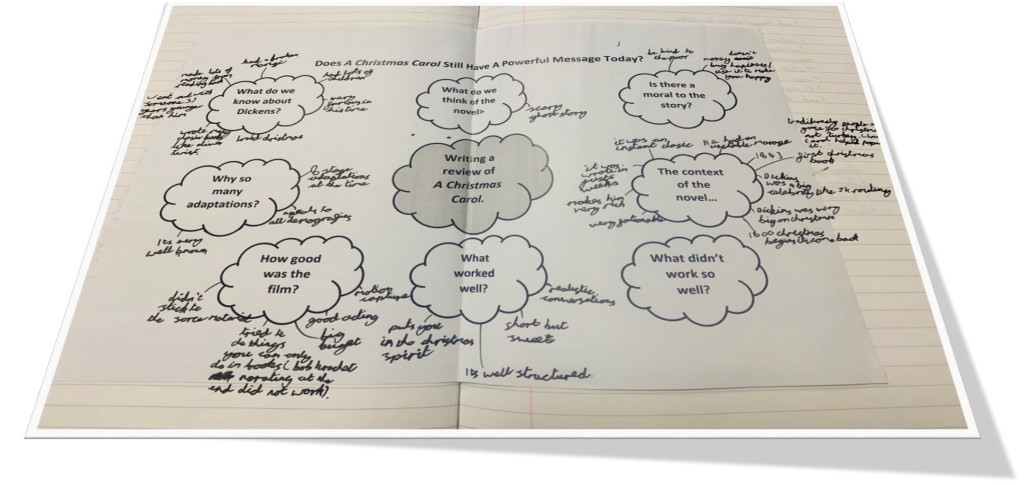 Does A Christmas Carol Still Have A Powerful Message Today?
made lots of
money from
reading
had a broken
had lots of
children
very
in
his time
went out with
someone
years younger
than him
wrote many
books
like
twist
loved christmas
What do we
know about
Dickens?
What do we
think of the
novel>
scary
ghost story
be kind to
the poor
doesn't
money
buy happiness/
use it to make
you happy
Is there a
moral to the
story?
Why so
many
adaptations?
6 stage
adaptations
at the time
to
all
Its very
well known
Writing a
review of
A Christmas
Carol.
it was an
instant classic
it was
wrote in
weeks
makes him
very rich
he had an
unstable
The context
of the
novel...
1843
people
goose for christmas
not turkey
carol helped
it.
first christmas
book
Dickins
was a big
celebrity like JK rowling
Dickins was very
big on christmas
christmas
begins its come back
How good
was the
film?
didn't
stick to
the sorce material
tried to
do things
you can only
do in books (bob
narating at the
end did not work).
good acting
big
buget
motion
capture
What
worked
well?
puts you
in the christmas
spirit
its well structured
short but
sweet
realistic
conversations
What didn't
work so
well?